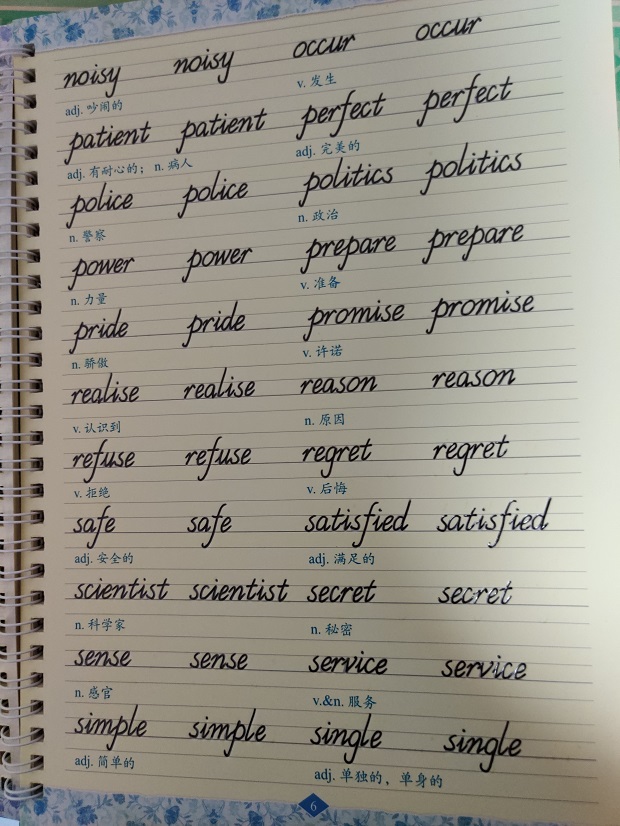 noisy noisy occur occur
adj. 吵闹的 v. 发生
patient patient perfect perfect
adj. 有耐心的； n. 病人 adj. 完美的
police police politics politics
n. 警察 n. 政治
power power prepare prepare
n. 力量 v. 准备
pride pride promise promise
n. 骄傲 v. 许诺
realise realise reason reason
v. 认识到 n. 原因
refuse refuse regret regret
v. 拒绝 v. 后悔
safe safe satisfied satisfied
adj. 安全的 adj. 满足的
scientist scientist secret secret
n. 科学家 n. 秘密
sense sense service service
n. 感官 v.&n. 服务
simple simple single single
adj. 简单的 adj. 单独的，单身的
6